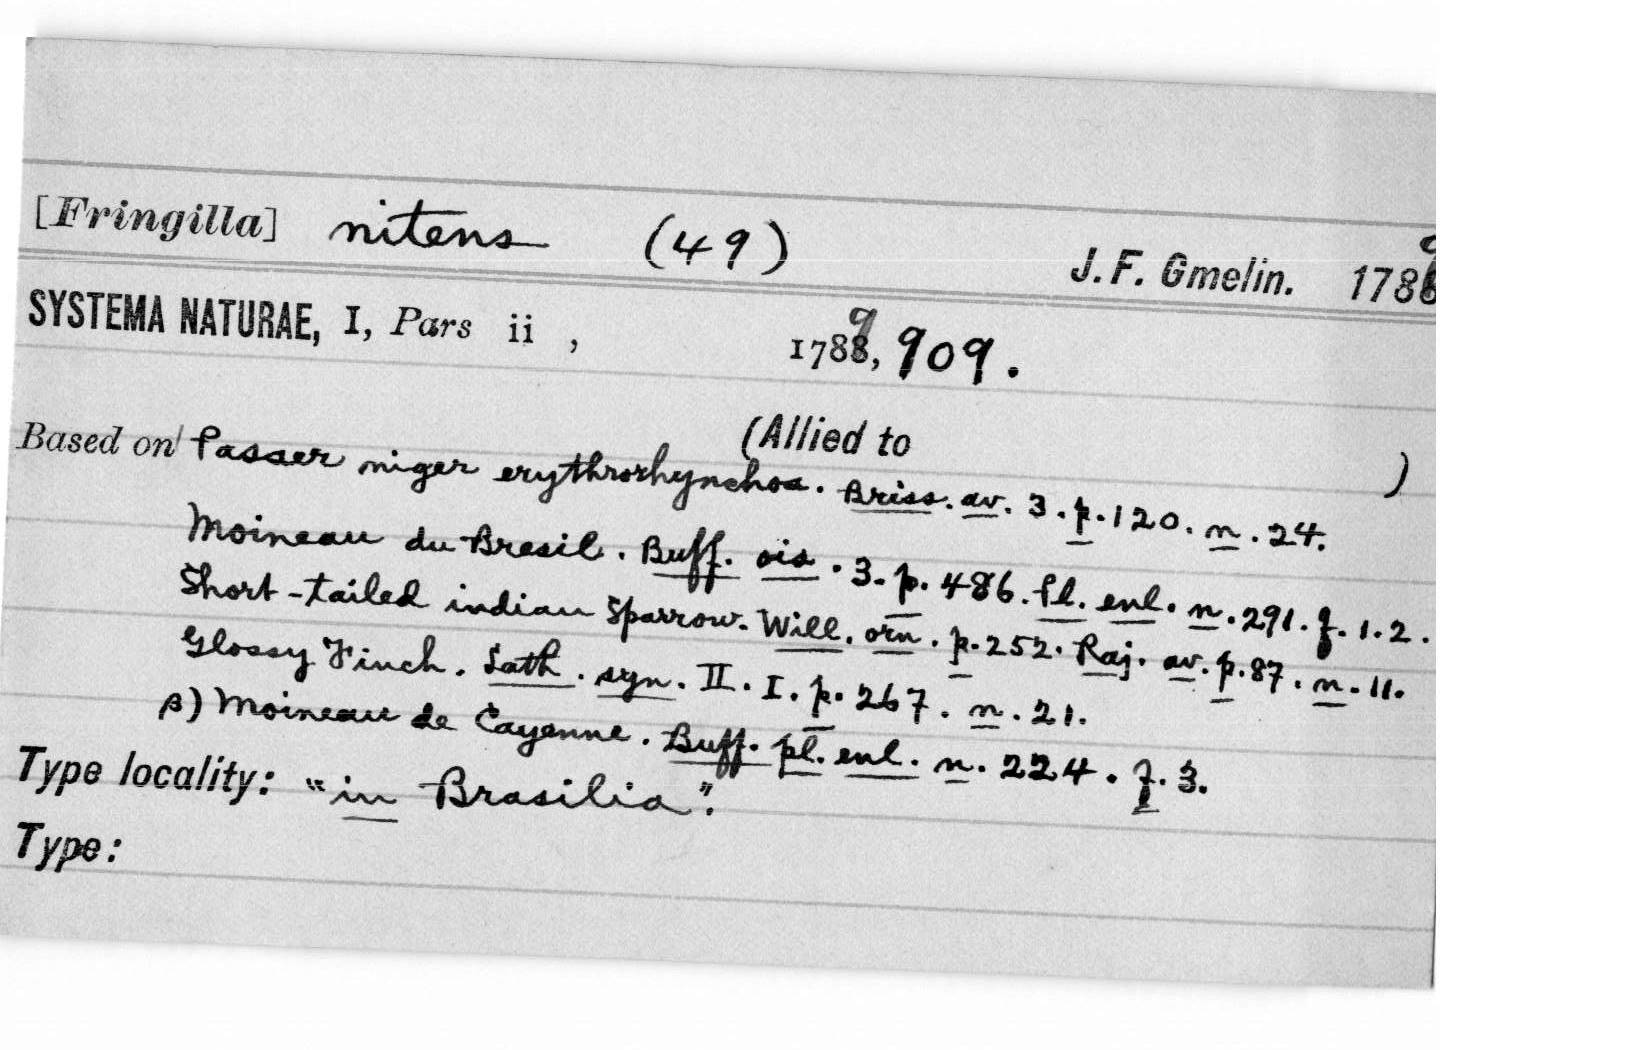 [Fringilla] nitens (49) J. F. Gmelin. 1789
SYSTEMA NATURAE, I, Pars ii, 1789, 909.
(Allied to )
Based on Passer niger erythrorhynchos. Briss. av. 3. p. 120. n. 24.
Moineau du Bresil. Buff. ois. 3. p. 486. Pl. enl. n. 291. f. 1. 2.
Short-tailed indian Sparrow. Will. orn. p. 252. Raj. av. p. 87. n. 11.
Glossy Finch. Lath. syn. II. I. p. 267. n. 21.
β) Moineau de Cayenne. Buff. pl. enl. n. 224. f. 3.
Type locality: "in Brasilia".
Type: